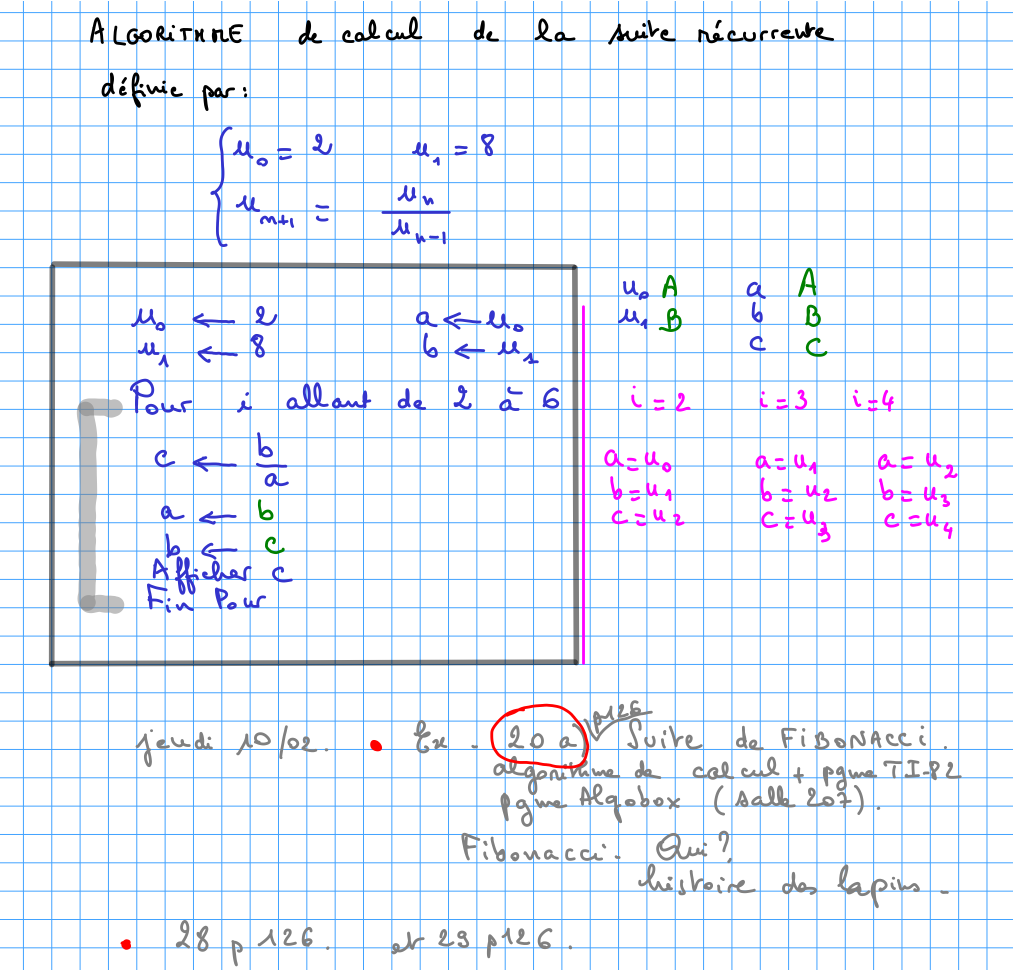 ALGORITHME de calcul de la suite récurrente
définie par :
u₀ = 2 u₁ = 8
uₙ₊₁ = uₙ / uₙ₋₁
u₀ ← 2 a ← u₀
u₁ ← 8 b ← u₁
Pour i allant de 2 à 6
c ← b / a
a ← b
b ← c
Afficher c
Fin Pour
u₀ A a A
u₁ B b B
c C
i = 2 i = 3 i = 4
a = u₀ a = u₁ a = u₂
b = u₁ b = u₂ b = u₃
c = u₂ c = u₃ c = u₄
jeudi 10/02. • Ex. 20 a) p126 Suite de FIBONACCI.
algorithme de calcul + pgme TI-82
pgme Algobox (salle 207).
Fibonacci. Qui?
histoire des lapins.
• 28 p 126. et 29 p126.